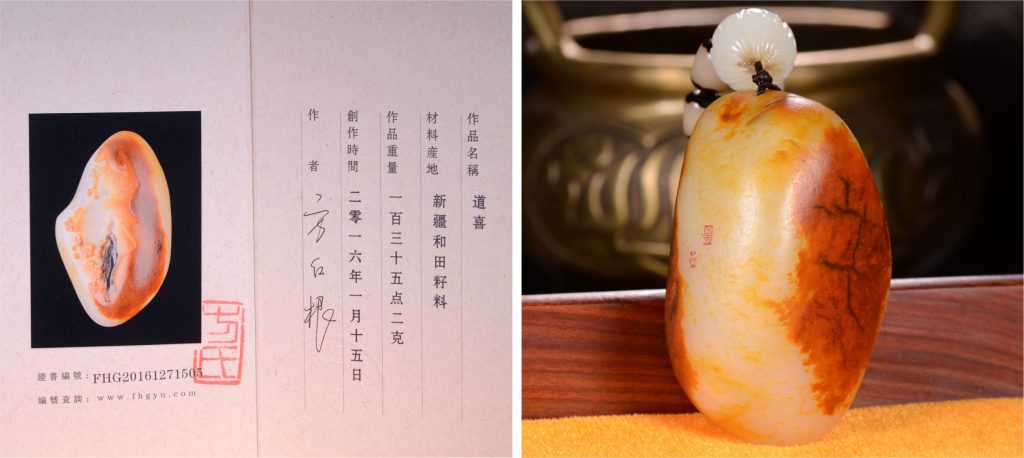 作品名稱 道喜
材料産地 新疆和田籽料
作品重量 一百三十五点二克
創作時間 二零一六年一月十五日
作者 方红根
證書編號：FHG20161271505
編號查詢：www.fhgyu.com
方氏